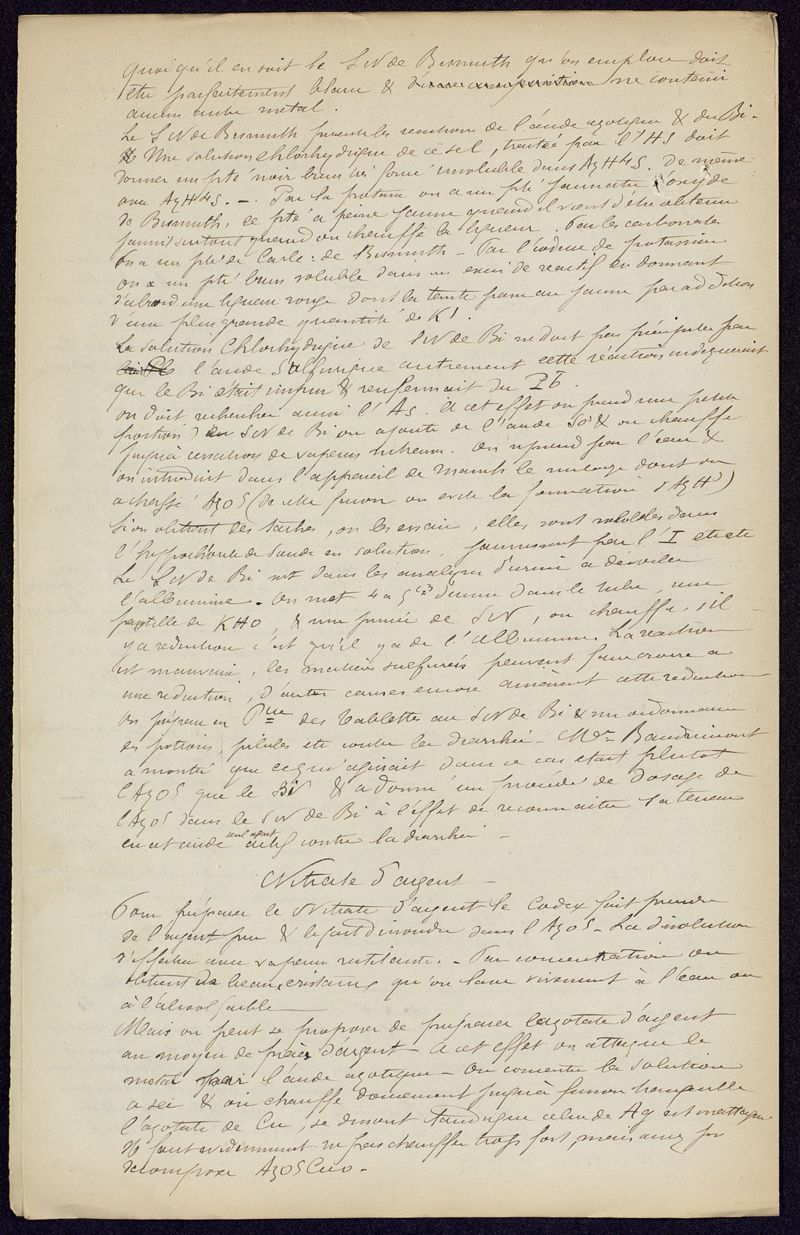 Quoi qu'il en soit le S N de Bismuth qu'on emploie doit
être parfaitement blanc & ne contenir
aucun autre métal.
Le S N de Bismuth présente les réactions de l'acide azotique & du Bi-
Une solution chlorhydrique de ce sel, traitée par l'HS doit
donner un pté noir brun insoluble dans AzH4S. De même
avec AzH4S. — Par la potasse on a un pté jaunâtre d'oxyde
de Bismuth, ce pté à peine jaune quand il vient d'être obtenu
jaunit surtout quand on chauffe la liqueur. Par les carbonates
on a un pté de Carb: de Bismuth — Par l'iodure de potassium
on a un pté brun soluble dans un excès de réactif en donnant
d'abord une liqueur rouge dont la teinte passe au jaune par addition
d'une plus grande quantité de KI.
La solution Chlorhydrique de S N de Bi ne doit pas précipiter par
l'acide Sulfurique autrement cette réaction indiquerait
que le Bi était impur & renfermait du Pb.
on doit rechercher aussi l'As. A cet effet on prend une petite
portion de S N de Bi on ajoute de l'acide SO3 & on chauffe
jusqu'à cessation de vapeurs nitreuses. On reprend par l'eau &
on introduit dans l'appareil de Marsh le mélange dont on
a chassé AzO5 (de cette façon on évite la formation d'AzH3)
Si on obtient des taches, on les essaie, elles sont solubles dans
l'hypochlorite de soude en solution, jaunissent par l'I etc etc
Le S N de Bi sert dans les analyses d'urine à déceler
l'albumine. On met 4 à 5 c3 d'urine dans le tube, une
pastille de KHO, & une pincée de S N, on chauffe, s'il
y a réduction c'est qu'il y a de l'albumine. La réaction
est mauvaise, les matières sulfurées peuvent faire croire à
une réduction, d'autres causes encore amènent cette réduction
On prépare en Pcie des tablettes au S N de Bi & on ordonne
en potions, pilules etc contre la diarrhée — Mr Baudrimont
a montré que ce qui agissait dans ce cas était plutôt
l'AzO5 que le Bi & a donné un procédé de dosage de
l'AzO5 dans le S N de Bi à l'effet de reconnaître la teneur
en cet acide seul agent actif contre la diarrhée —
Nitrate d'argent —
Pour préparer le Nitrate d'argent le Codex fait prendre
de l'argent pur & le fait dissoudre dans l'AzO5 — La dissolution
s'effectue avec vapeurs rutilantes. — Par concentration on
obtient de beaux cristaux qu'on lave vivement à l'eau ou
à l'alcool faible —
Mais on peut se proposer de préparer l'azotate d'argent
au moyen de pièces d'argent — A cet effet on attaque le
métal par l'acide azotique — On concentre la solution
à sec & on chauffe doucement jusqu'à fusion tranquille
l'azotate de Cu, se détruit tandis que celui de Ag est inattaqué
Il faut évidemment ne pas chauffer trop fort, mais assez pr
décomposer AzO5CuO —